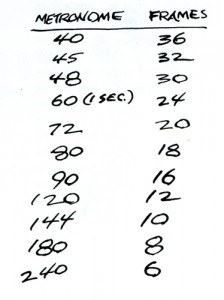 METRONOME FRAMES
40 36
45 32
48 30
60 (1 SEC.) 24
72 20
80 18
90 16
120 12
144 10
180 8
240 6